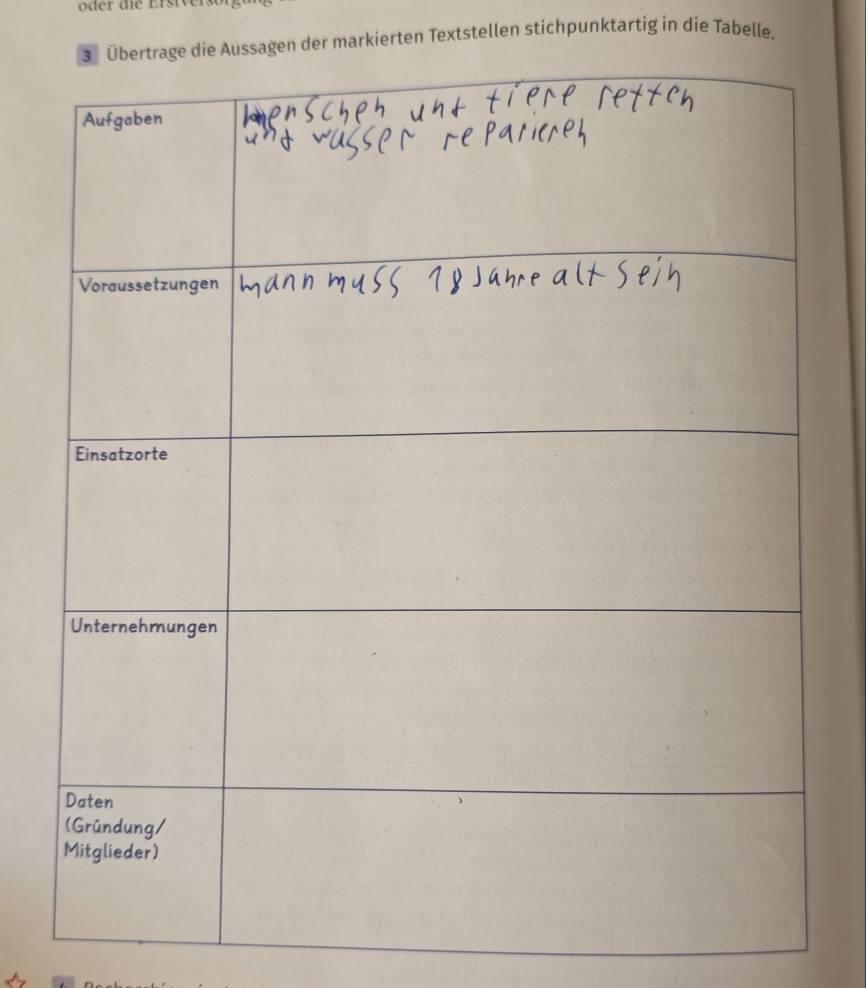 oder die Erstversorgung
3 Übertrage die Aussagen der markierten Textstellen stichpunktartig in die Tabelle.
Aufgaben
menschen unt tiere retten
unt wasser reparieren
Voraussetzungen
mann muss 18 Jahre alt sein
Einsatzorte
Unternehmungen
Daten
(Gründung/
Mitglieder)